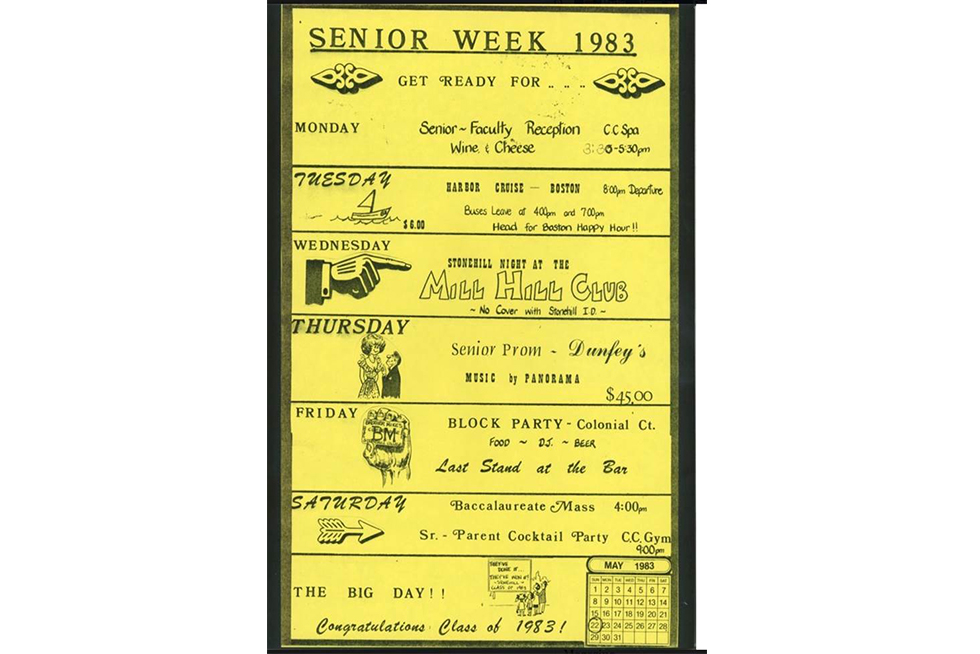 SENIOR WEEK 1983
GET READY FOR . . . . .
MONDAY
Senior~Faculty Reception C.C Spa
Wine & Cheese 3:30-5:30pm
TUESDAY
HARBOR CRUISE — BOSTON 8:00pm Departure
$6.00
Buses Leave at 4:00pm and 7:00pm
Head for Boston Happy Hour!!
WEDNESDAY
STONEHILL NIGHT AT THE
MILL HILL CLUB
~ No Cover with Stonehill I.D. ~
THURSDAY
Senior Prom ~ Dunfey's
MUSIC by PANORAMA
$45.00
FRIDAY
BM
BLOCK PARTY - Colonial Ct.
FOOD ~ D.J. ~ BEER
Last Stand at the Bar
SATURDAY
Baccalaureate Mass 4:00pm
Sr. - Parent Cocktail Party C.C. Gym
9:00pm
THE BIG DAY!!
THEY'VE
DONE IT...
CLASS OF 1983
Congratulations Class of 1983!
MAY 1983
SUN MON TUE WED THU FRI SAT
1 2 3 4 5 6 7
8 9 10 11 12 13 14
15 16 17 18 19 20 21
22 23 24 25 26 27 28
29 30 31